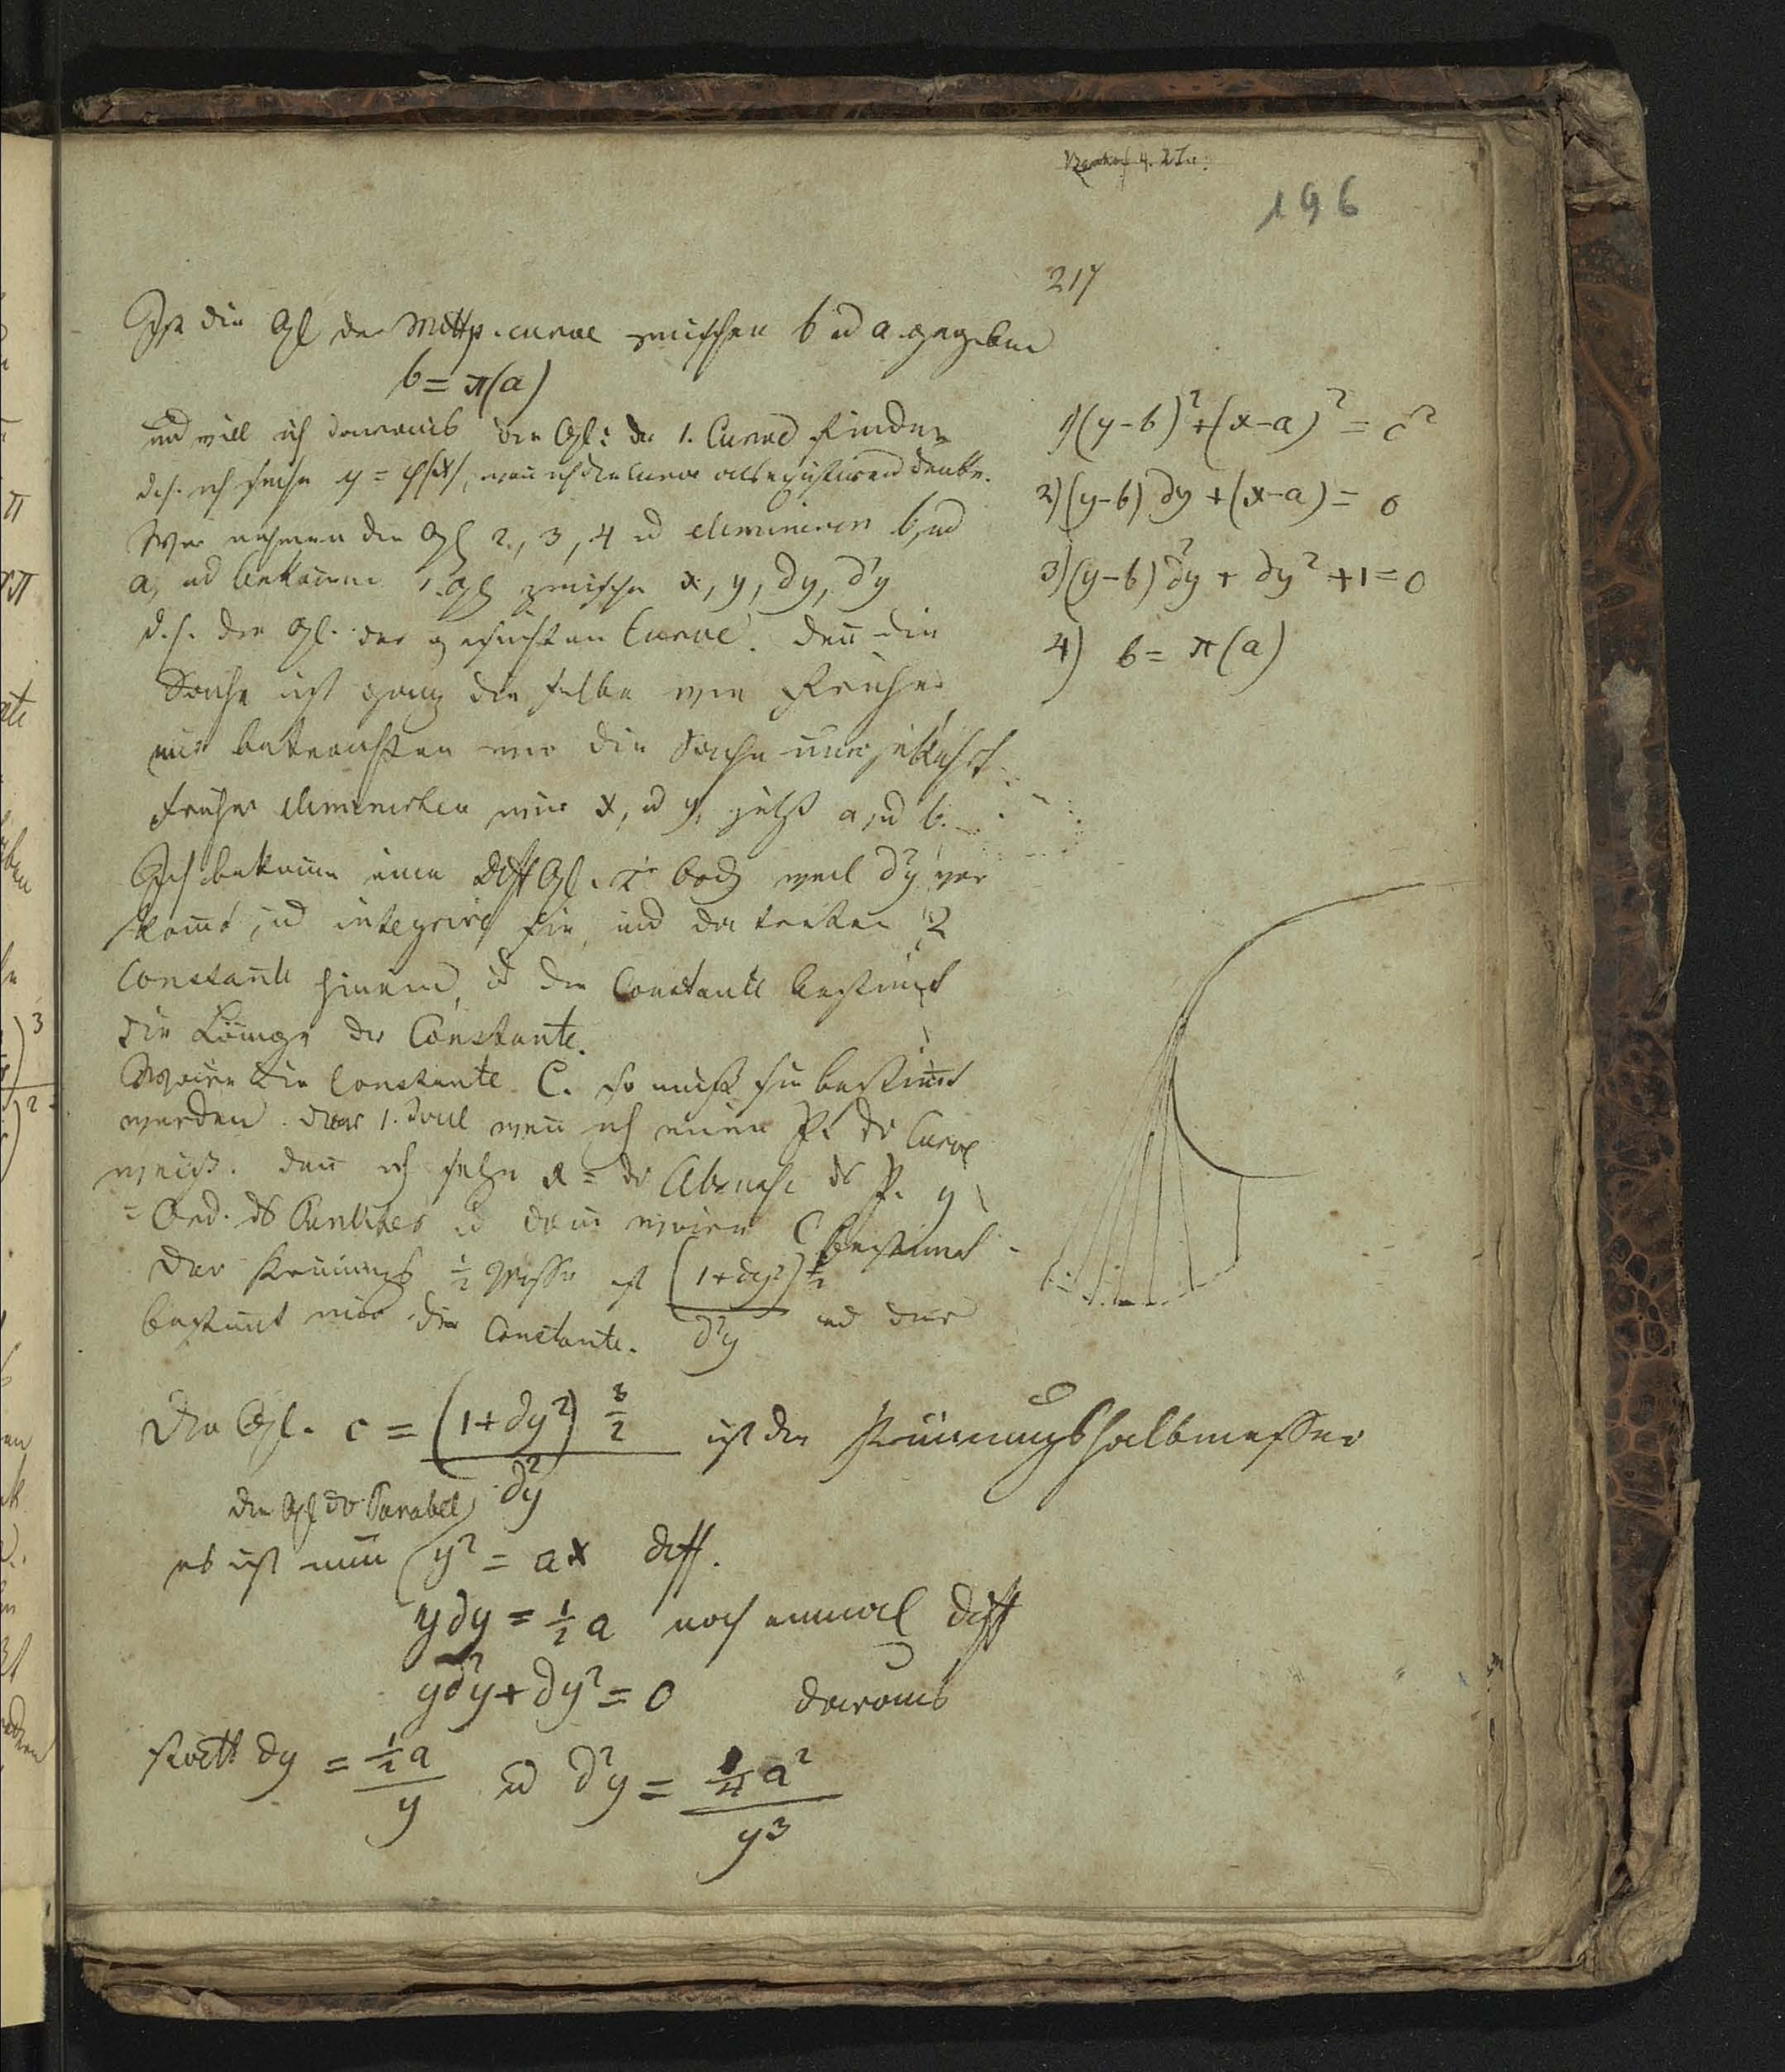 196
217
Ist die Gl der Mittp. curve zwischen b u a gegeben
b = π(a)
und will ich daraus die Gl: der 1. Curve finden
d.h. ich suche y = φ(x), wenn ich die Curve als existirend denke.
Wir nehmen die Gl 2, 3, 4 u eliminiren b, und
a, und bekomm 1. Gl zwischen x, y, ∂y, ∂²y
d.h. die Gl. der gesuchten Curve. Denn die
Sache ist ganz die selbe wie früher
nur betrachten wir die Sache umgekehrt
früher eliminirten wir x, u y, jetzt a, und b.
Ich bekomme eine Diff Gl. weil ∂²y vor
kommt, und integrire sie, und da treten 2
Constante hinein, u die Constante bestimmt
die Länge der Constante.
Wäre die Constante C. so muß sie bestimmt
werden. wenn ich einen Pt der Curve
weiß. denn ich setze x = der Absciße des P. y
= Ord. des Punktes u dann wäre C bestimmt
Der Krümmungs ½ Messer ist (1+∂y²)^3/2 / ∂²y und der
bestimmt mir die Constante.
1) (y-b)² + (x-a)² = c²
2) (y-b) ∂y + (x-a) = 0
3) (y-b) ∂²y + ∂y² + 1 = 0
4) b = π(a)
Die Gl. c = (1+∂y²)^3/2 / ∂²y ist der Krümmungshalbmesser
die Gl der Parabel
es ist nun y² = ax diff.
y∂y = ½ a noch einmal diff
y∂²y + ∂y² = 0 daraus
statt ∂y = ½a / y u ∂²y = ¼a² / y³